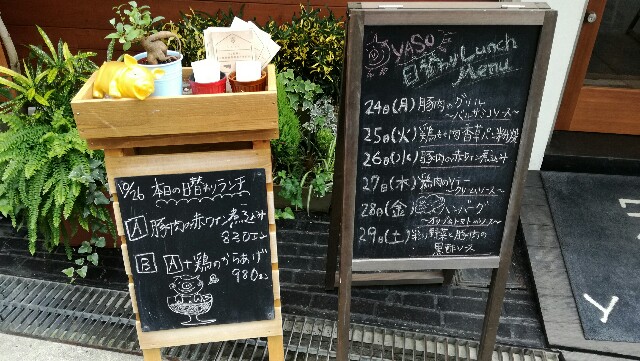 10/26 本日の日替りランチ
A 豚肉の赤ワイン煮込み
830エン
B A+鶏のからあげ
980エン
YASU
日替りLunch
Menu
24日(月)豚肉のグリル
～バルサミコソース～
25日(火)鶏もも肉香草パン粉焼
26日(水)豚肉の赤ワイン煮込み
27日(木)鶏肉のソテー
～クリームソース～
28日(金)ハンバーグ
29日(土)彩り野菜と豚肉の
黒酢ソース
Y